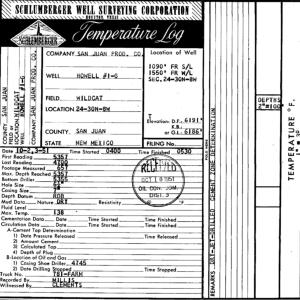 SCHLUMBERGER WELL SURVEYING CORPORATION
HOUSTON, TEXAS
SCHLUMBERGER
Temperature Log
COMPANY SAN JUAN PROD. CO.
Location of Well
1090' FR S/L
1550' FR W/L
SEC. 24-30N-8W
WELL HOWELL #1-G
FIELD WILDCAT
LOCATION 24-30N-8W
Elevation: D.F.: 6191'
K.B.
or G.L.: 6186'
COUNTY SAN JUAN
STATE NEW MEXICO
FILING No.
COUNTY SAN JUAN
FIELD or LOCATION WILDCAT 24-30N-8W
WELL HOWELL #1-G
COMPANY SAN JUAN PROD. CO.
RUN No.
Date 10-2,3-51
Time Started 0400
Finished 0530
First Reading 5357
Last Reading 4700
Footage Measured 657
Max. Depth Reached
Bottom Driller
Hole Size
Casing Size
Depth Datum RDB
Mud Nature DRY
Resistivity
Fluid Level
Max. Temp. 138
Cementation Data
Circulation Data
Time Started
Time Finished
A-Location of Cement Top
1) Date Pressure Released
2) Amount Cement
3) Calculated Top
4) Depth of Plug
B-Location of Oil and Gas
1) Casing Shoe Driller 4745
2) Date Drilling Stopped
Truck No. 781-FARM
Recorded By MILLIS
Witnessed By CLEMENTS
RECEIVED
OCT 1951
OIL CON. COM.
DIST. 3
REMARKS
CEMENT ZONE DETERMINATION
DEPTHS
2"=100'
TEMPERATURE °F.